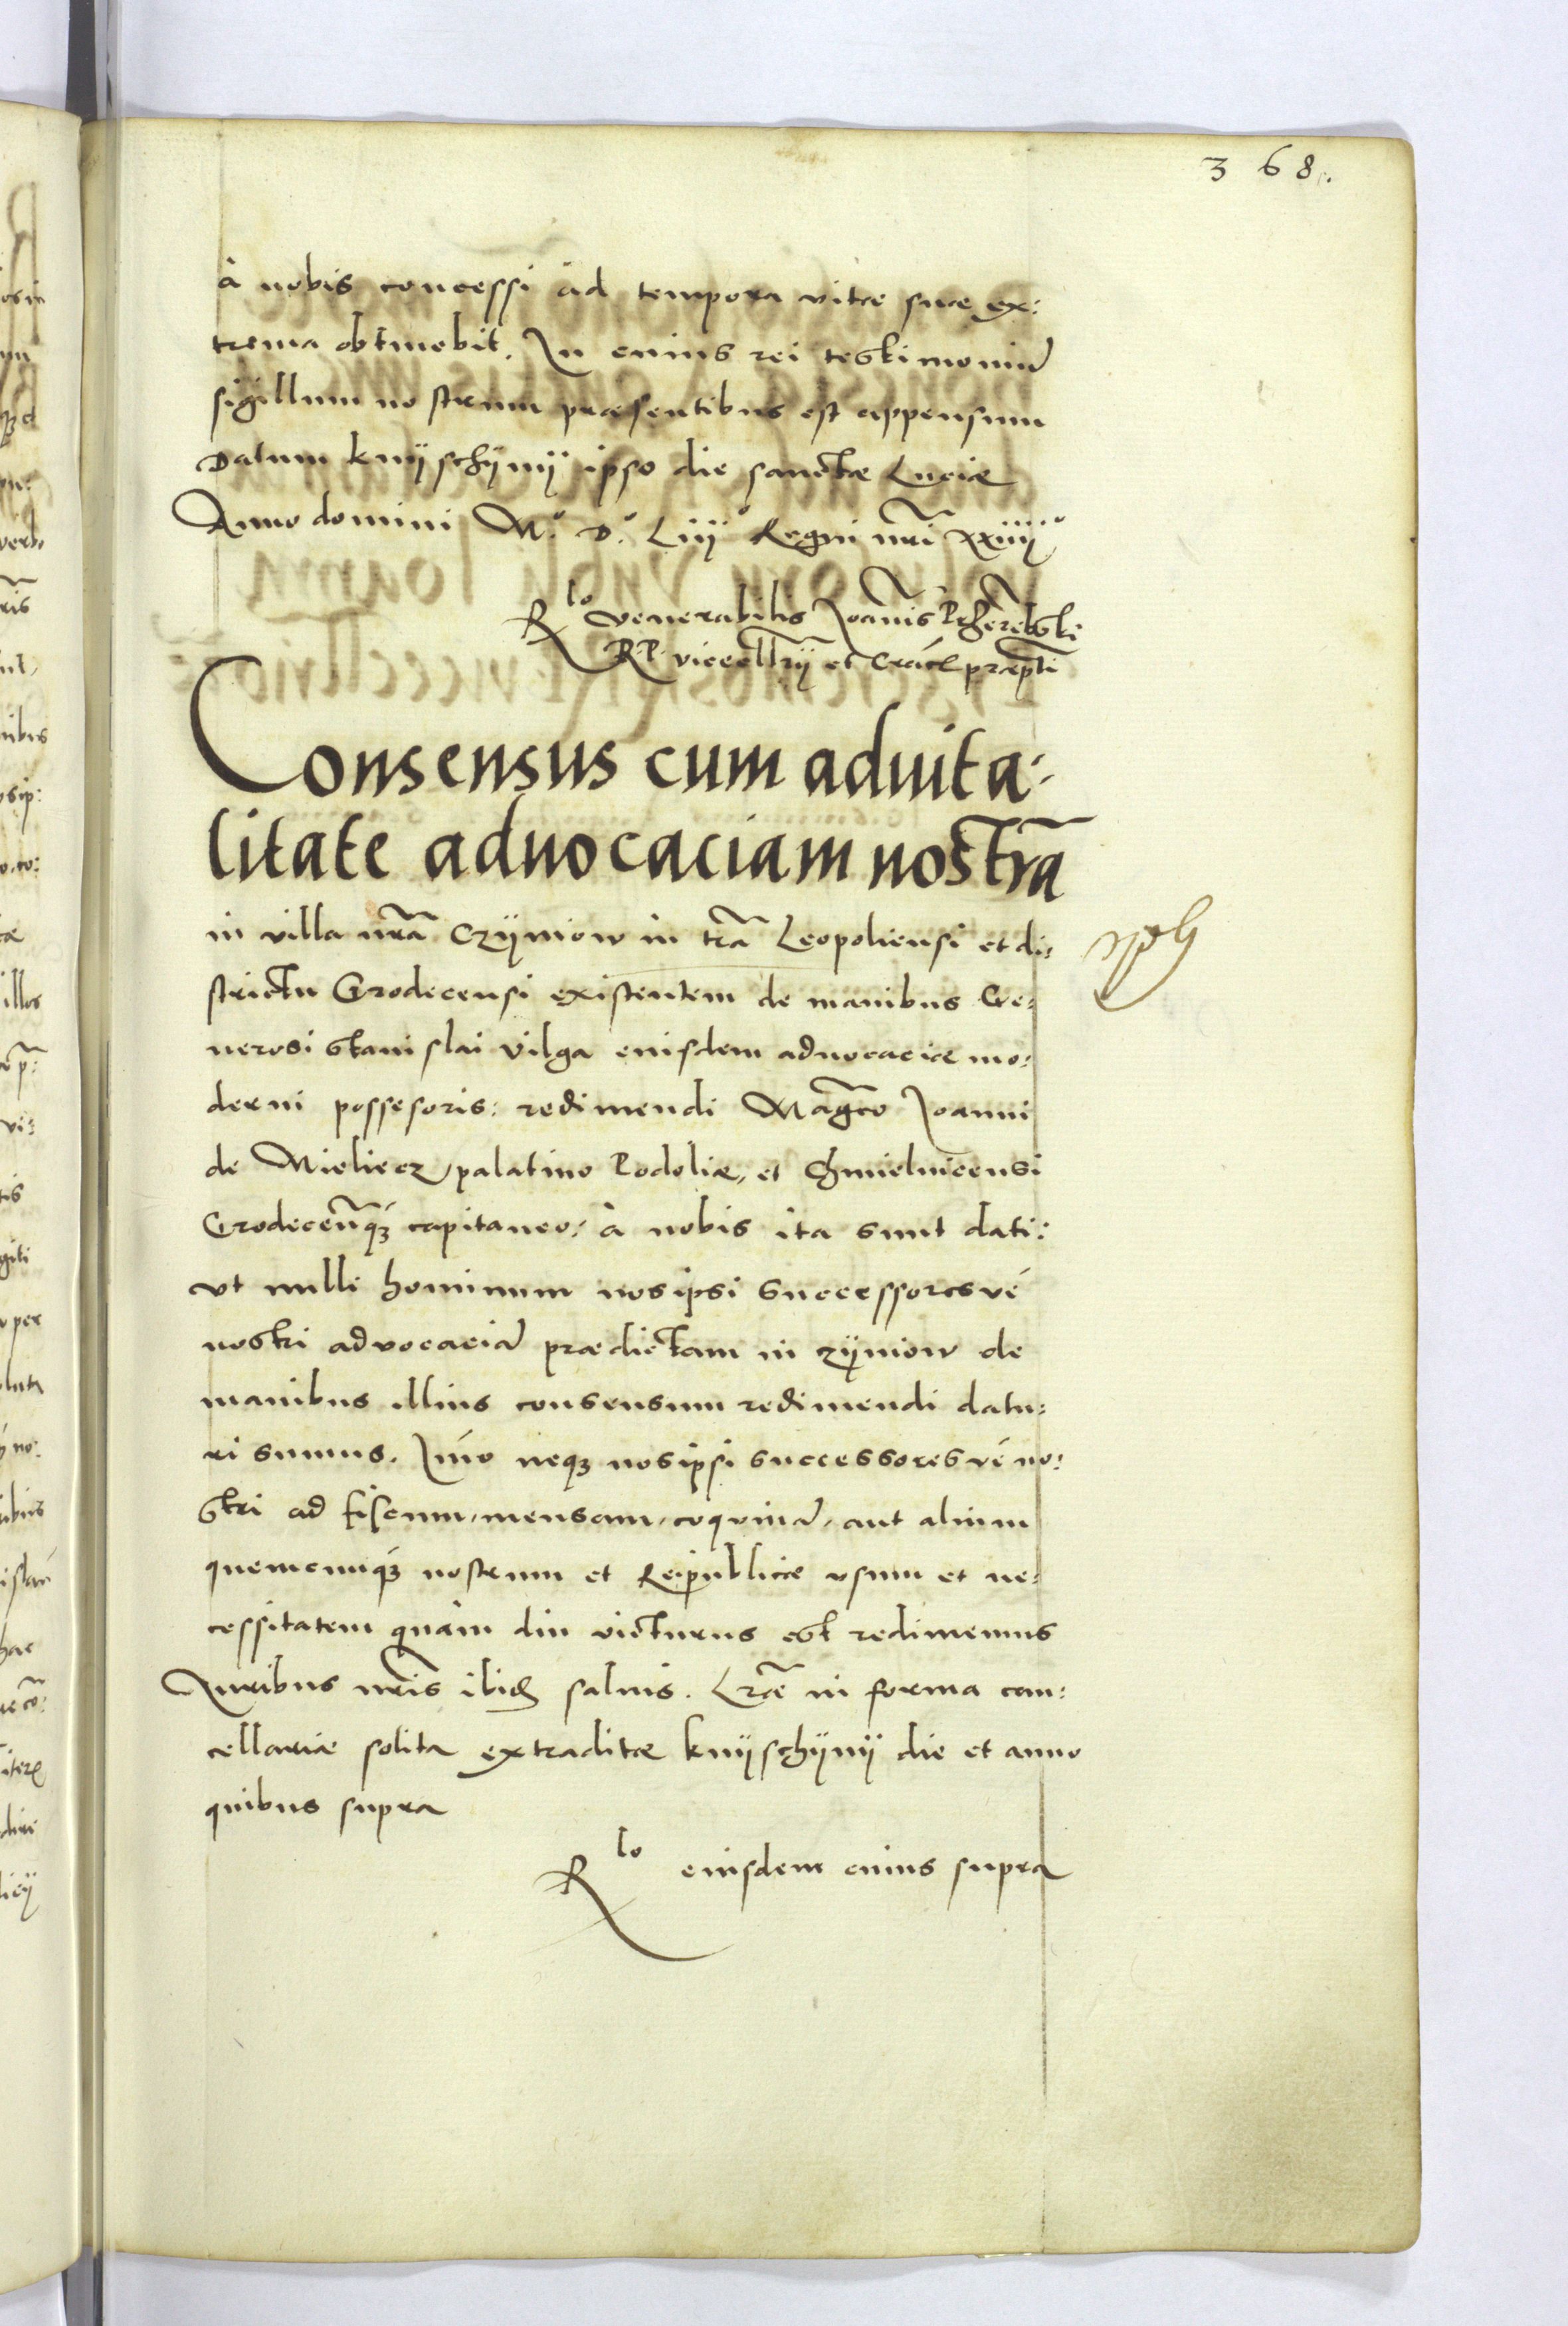 368.
à nobis concessi ad tempora vitæ suæ ex:
trema obtinebit. In cuius rei testimoniũ
sigillum nostrum præsentibus est appensum
Datum knÿschÿnÿ ipso die sanctæ Luciæ
Anno domini M.º D.º Liij Regni nr̃i xxiiij.º
R^lo venerabilis Joannis Przerembski
R. P. vicecellr̃ij et Crac̃ præpti
Consensus cum aduita:
litate aduocaciam nostrã
in villa nr̃a Czÿniow in tr̃a Leopoliensi et di:
strictu Grodecensi existentem de manibus Ge:
nerosi Stanislai Vilga eiusdem aduocaciæ mo:
derni possesoris: redimendi Mag̃co Joanni
de Mieliecz, palatino Podoliæ, et Chmielnicensi
Grodecen̄qȝ capitaneo: à nobis ita sunt dati:
vt nulli hominum nosipsi successoresvé
nostri advocaciã prædictam in czÿniow de
manibus illius consensum redimendi datu:
ri sumus. Imo neqȝ nosipsi successoresvé no:
stri ad fiscum, mensam, coquinã, aut alium
quemcunqȝ nostrum et Reipublicæ vsum et ne:
cessitatem quàm diu victurus est redimemus
Juribus nr̃is ibid̃ saluis. Lr̃æ in forma can:
cellariæ solita extraditæ knÿschÿnÿ die et anno
quibus supra
R^lo eiusdem cuius supra